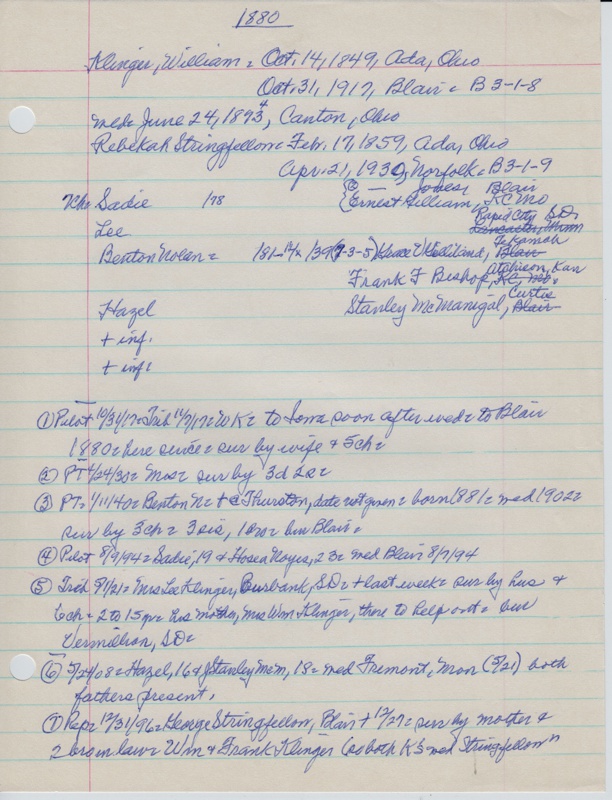 1880
Klinger, William = Oct. 14, 1849, Ada, Ohio
Oct. 31, 1917, Blair = B 3-1-8
med= June 24, 1873 4, Canton, Ohio
Rebekah Stringfellow = Feb. 17, 1859, Ada, Ohio
Apr. 21, 1930, Norfolk = B3-1-9
Jones, Blair
Ernest Gilliam, KC Mo
Ch= Sadie 178
Rapid City S.D.
Lee
Tekamah
Benton Nolan = Blair
Atchison, Kan
Frank F Bishop, KC, Mo.
Curtis
Hazel Stanley McManigal, Blair
+ inf.
+ inf.
① Pilot 10/31/17= Trib 11/7/17= WK= to Iowa soon after wed= to Blair
1880= here since= sur by wife & 5ch=
② PT 4/24/30= Mos= sur by 3d 2s=
③ PT= 1/11/40= Benton N= + Thurston, date not given= born 1881= med 1902=
sur by 3ch= 3sis, bur Blair=
④ Pilot 8/9/94= Sadie, 19 & Hosea Noyes, 23= med Blair 8/7/94
⑤ Trib 9/1/21= Mrs Lee Klinger, Burbank, SD= + last week= sur by hus &
6ch= 2 to 15yr= hus mother, Mrs Wm Klinger, there to help out= bur
Vermillion, SD=
⑥ 5/24/08= Hazel, 16 & Stanley McM, 18= med Fremont, Mon (5/21) both
fathers present,
⑦ Rep= 12/31/96= George Stringfellow, Blair + 12/27= sur by mother &
2 bros in law= Wm & Frank Klinger (so both K's med Stringfellow"